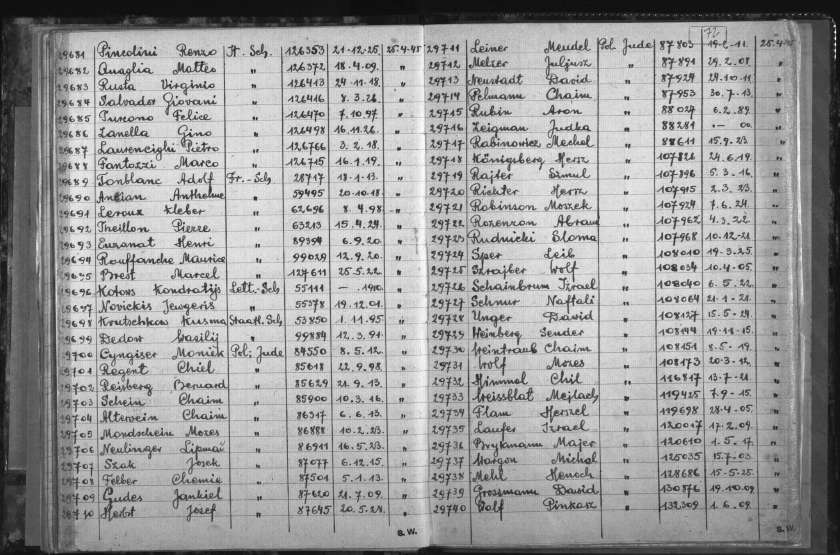 29681 Pincolini Renzo It. Sch. 126353 21-12-25. 25.4.45
29682 Quaglia Matteo " 126372 18.4.09. "
29683 Rusta Virginio " 126413 24-11-18. "
29684 Salvador Giovani " 126416 8.3.26. "
29685 Tuscono Felice " 126470 7.10.97 "
29686 Zanella Gino " 126498 16.11.26. "
29687 Laurencighi Pietro " 126766 3.2.18. "
29688 Fantozzi Marco " 126715 16.1.19. "
29689 Fonblanc Adolf Fr.-Sch. 28717 18.1-13. "
29690 Anthelme " 59495 20-10-18. "
29691 Leroux Kleber " 62696 8.4.98. "
29692 Theillon Pierre " 63213 15.4.24. "
29693 Henri " 89354 6.9.20. "
29694 Rouffanche Maurice " 99029 12.9.20. "
29695 Brest Marcel " 127611 25.5.22. "
29696 Kotows Kondratijs Lett.-Sch. 55111 — 1910. "
29697 Novickis Jewgeris " 55378 19.12.01. "
29698 Krutschkow Kusma Staatl. Sch. 53850 1.11.95 "
29699 Dedow Wasilij " 99884 12.3.91. "
29700 Cyngiser Moniek Pol. Jude 84550 8.5.12. "
29701 Regent Chiel " 85018 22.9.98. "
29702 Reisberg Bernard " 85629 21.9.13. "
29703 Schein Chaim " 85900 10.3.16. "
29704 Alterwein Chaim " 86317 6.6.13. "
29705 Mondschein Mozes " 86888 10.2.23. "
29706 Neulinger Lipman " 86911 16.5.23. "
29707 Szak Josek " 87077 6.12.15. "
29708 Felber Chemie " 87501 5.1.13. "
29709 Gudes Jankiel " 87620 21.7.09. "
29710 Herbt Josef " 87645 20.5.24. "
S.W.
72
29711 Leiner Mendel Pol. Jude 87803 19.2.11. 25.4.45
29712 Melzer Juljusz " 87891 29.2.08 "
29713 Neustadt David " 87924 24.10.11. "
29714 Pelmann Chaim " 87953 30.7.13. "
29715 Rubin Aron " 88027 6.2.89. "
29716 Zeigman Judka " 88281 — 00. "
29717 Rabinowicz Mechel " 88611 15.9.23. "
29718 Königsberg Hersz " 107826 24.6.19. "
29719 Rajter Szmul " 107896 5.3.16. "
29720 Richter Hersz " 107915 2.3.23. "
29721 Robinson Moszek " 107924 7.6.24. "
29722 Rozenzon Abram " 107962 4.3.22. "
29723 Rudnicki Sloma " 107968 10.12-21. "
29724 Sper Leib " 108010 19.3.25. "
29725 Szrajber Wolf " 108034 10.4.05. "
29726 Schainbrum Izrael " 108040 6.5.22. "
29727 Schnur Naftali " 108064 21-1-21. "
29728 Unger Dawid " 108127 15.5.24. "
29729 Weinberg Sender " 108144 19-11-15. "
29730 Weintraub Chaim " 108151 8.5.19. "
29731 Wolf Mozes " 108173 20-3-12. "
29732 Himmel Chil " 116817 13.7-21 "
29733 Weissblat Mejlach " 119425 7.9.15. "
29734 Flam Herszel " 119698 28.4.05. "
29735 Laufer Izrael " 120017 17.2.09. "
29736 Brykmann Majer " 120610 1.5.17 "
29737 Margon Michal " 125035 15.7.03. "
29738 Mehl Henoch " 128686 15.5.25. "
29739 Grossmann David " 130876 19.10.09 "
29740 Wolf Pinkasz " 132309 1.6.09. "
S.W.